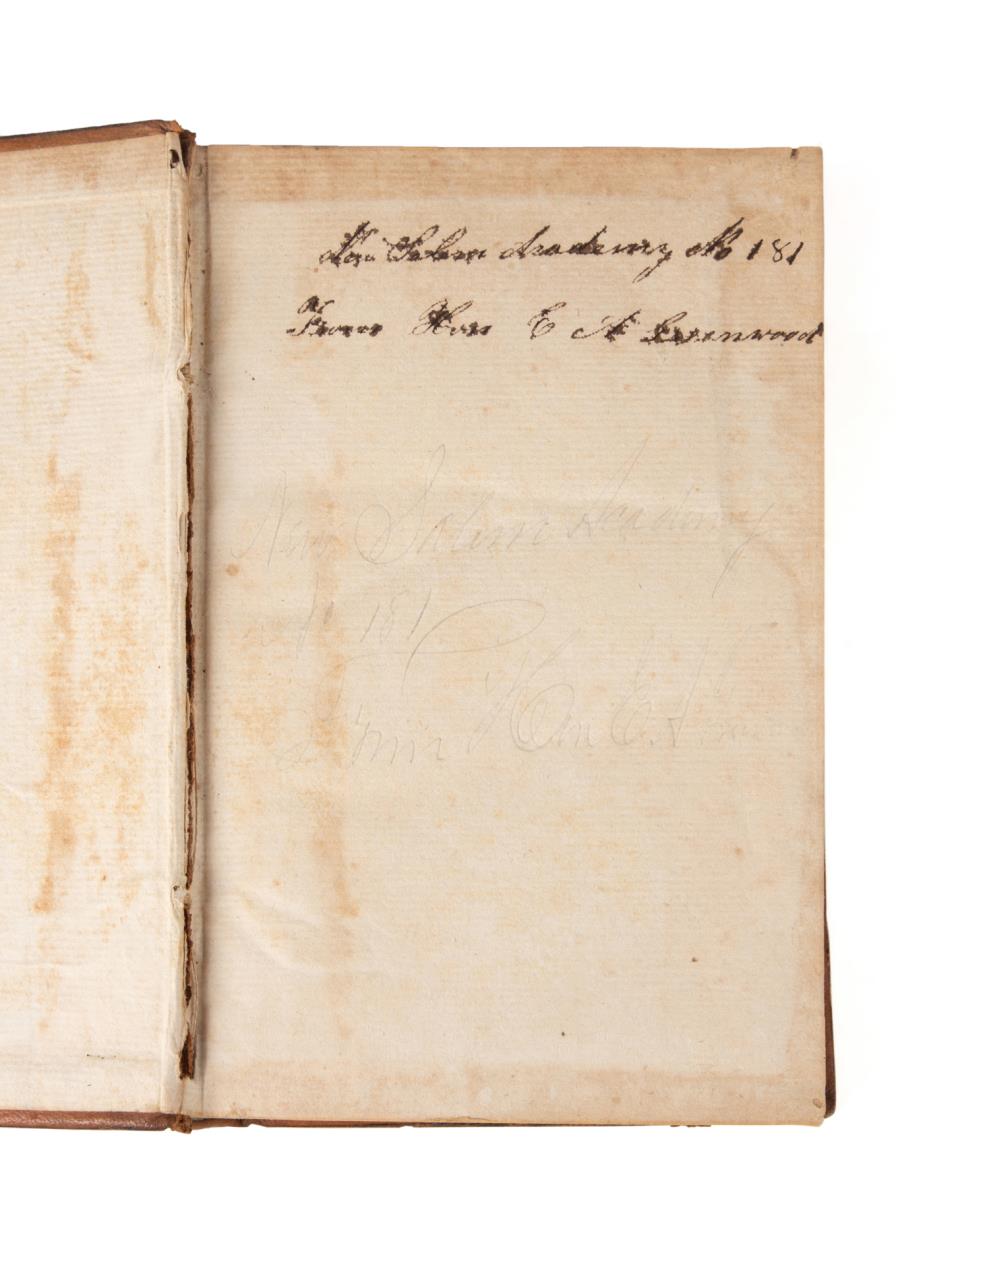 New Salem Academy No 181
From Hon E A Greenwood
New Salem Academy
No 181
From Hon E. A.